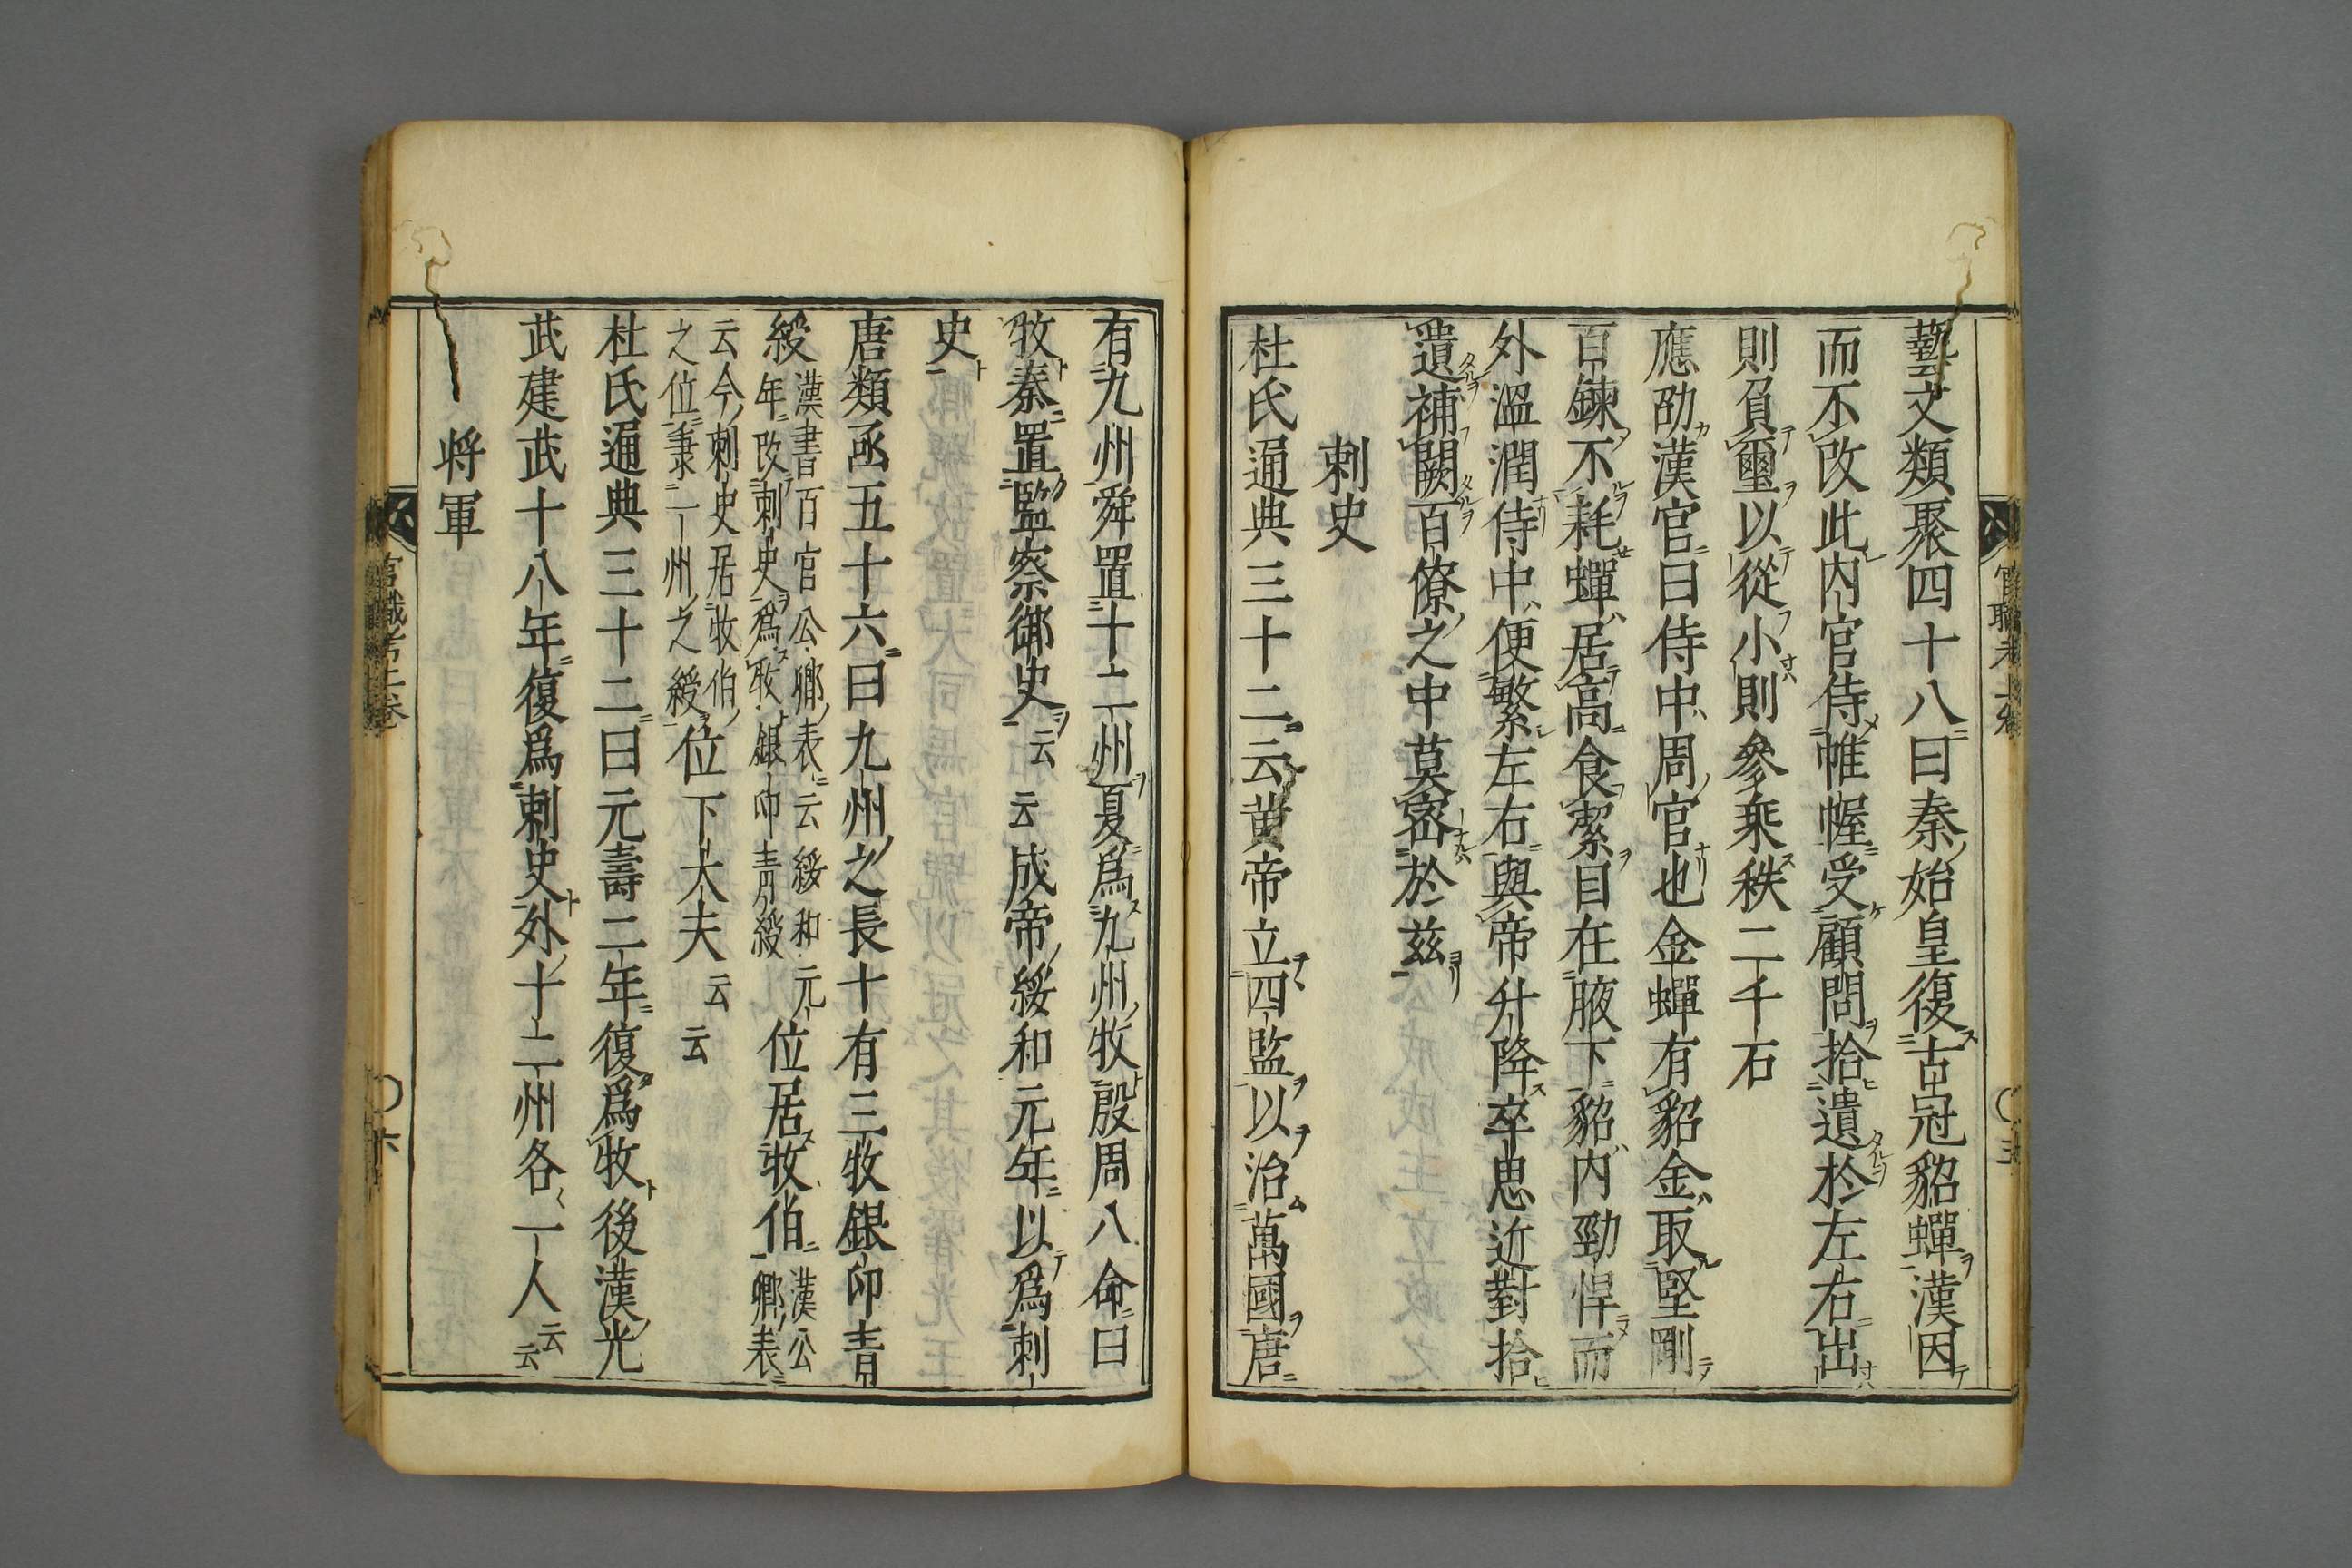 藝文類聚四十八曰秦始皇復古冠貂蟬漢因
而不改此内官侍帷幄受顧問拾遺於左右出
則負璽以從小則參乗秩二千石
應劭漢官曰侍中周官也金蟬有貂金取堅剛
百鍊不耗蟬居高食潔目在腋下貂内勁悍而
外溫潤侍中便繁左右與帝升降卒思近對拾
遺補闕百僚之中莫密於兹
刺史
杜氏通典三十二云黄帝立四監以治萬國唐
有九州舜置十二州夏為九州牧殷周八命曰
牧秦置監察御史云云成帝綏和元年以為刺
史
唐類函五十六曰九州之長十有三牧銀印青
綬漢書百官公卿表云綏和元年改刺史為牧銀印青綬位居牧伯漢公卿表
云今刺史居牧伯之位秉一州之綬位下大夫云云
杜氏通典三十二曰元壽二年復為牧後漢光
武建武十八年復為刺史外十二州各一人云云
将軍
官職考上卷